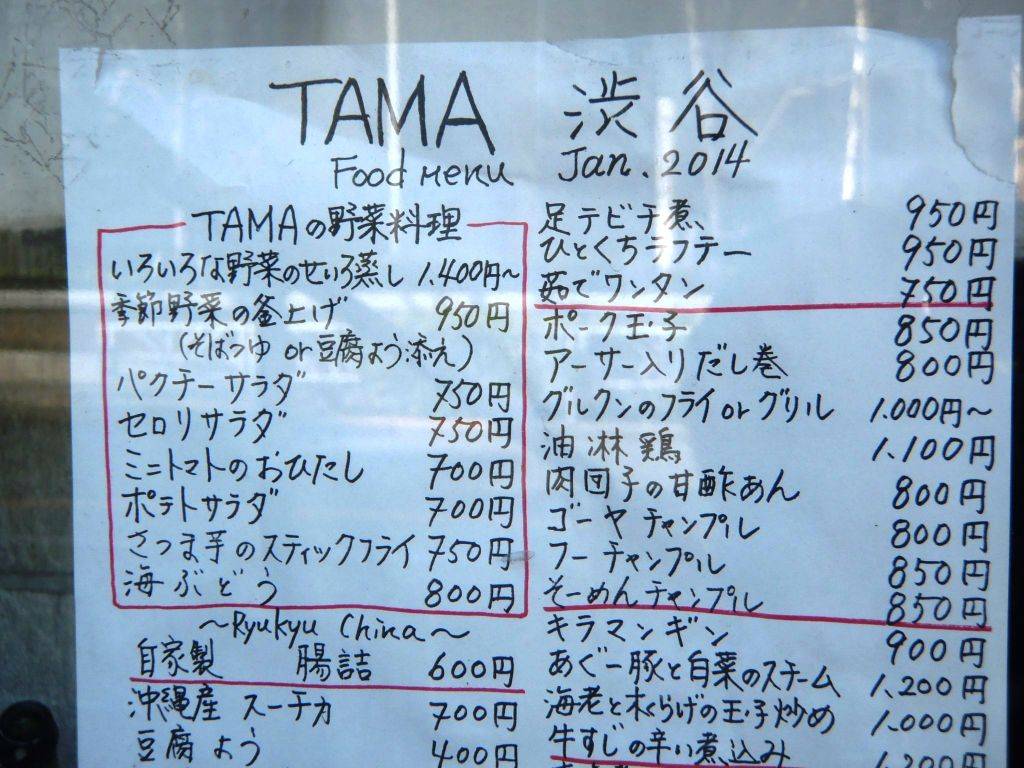 TAMA 渋谷
Food Menu Jan. 2014
TAMAの野菜料理
いろいろな野菜のせいろ蒸し 1.400円～
季節野菜の釜上げ 950円
(そばつゆ or 豆腐よう添え)
パクチーサラダ 750円
セロリサラダ 750円
ミニトマトのおひたし 700円
ポテトサラダ 700円
さつま芋のスティックフライ 750円
海ぶどう 800円
～Ryukyu China～
自家製 腸詰 600円
沖縄産 スーチカ 700円
豆腐よう 400円
足テビチ煮、 950円
ひとくちラフテー 950円
茹でワンタン 750円
ポーク玉子 850円
アーサー入りだし巻 800円
グルクンのフライorグリル 1.000円～
油淋鶏 1.100円
肉団子の甘酢あん 800円
ゴーヤチャンプル 800円
フーチャンプル 850円
そーめんチャンプル 850円
キラマンギン 900円
あぐー豚と白菜のスチーム 1.200円
海老と木くらげの玉子炒め 1.000円
牛すじの辛い煮込み